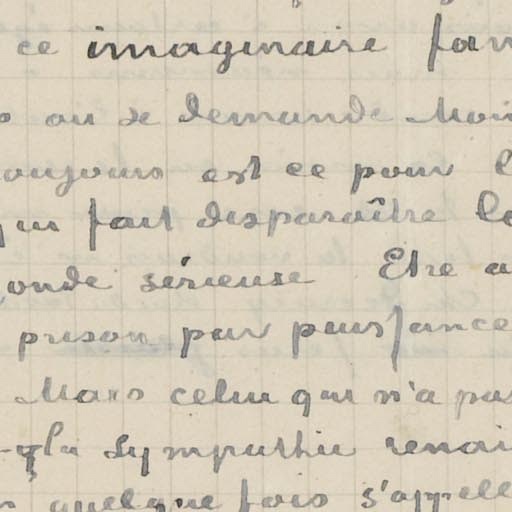 ce imaginaire
ou se demande
toujours est ce pour
qui fait disparaître
onde sérieuse Etre
prison par puissance
Mais celui qui n'a pas
la sympathie
quelque fois s'appell